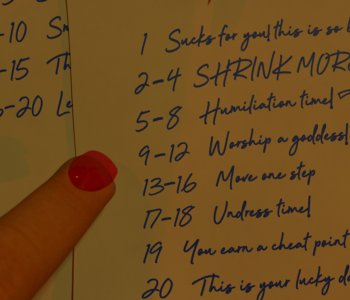 -10
-15
-20
1 Sucks for you! this is so
2-4 SHRINK MOR
5-8 Humiliation time!
9-12 Worship a goddess!
13-16 Move one step
17-18 Undress time!
19 You earn a cheat point
20 This is your lucky